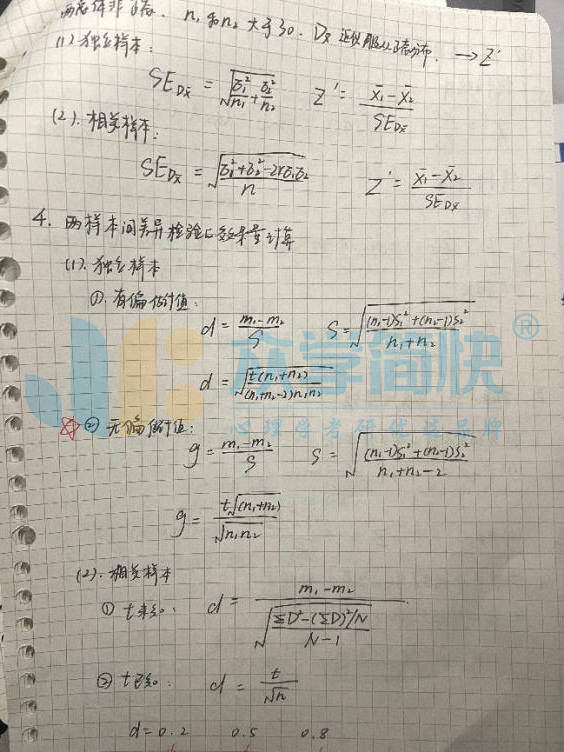 两总体非正态. n₁和n₂大于30. D_X̄近似服从正态分布. → Z'
(1) 独立样本:
SE_DX̄ = √(σ₁²/n₁ + σ₂²/n₂)   Z' = (X̄₁ - X̄₂)/SE_DX̄
(2). 相关样本:
SE_DX̄ = √((σ₁²+σ₂²-2rσ₁σ₂)/n)   Z' = (X̄₁ - X̄₂)/SE_DX̄
4. 两样本间差异检验的效果量计算
(1). 独立样本
①. 有偏估计值:
d = (m₁-m₂)/S   S = √(((n₁-1)S₁²+(n₂-1)S₂²)/(n₁+n₂))
d = √(t(n₁+n₂)/((n₁+n₂-2)n₁n₂))
② 无偏估计值:
g = (m₁-m₂)/S   S = √(((n₁-1)S₁²+(n₂-1)S₂²)/(n₁+n₂-2))
g = t√(n₁+n₂)/√(n₁n₂)
(2). 相关样本
① t未知: d = (m₁-m₂)/√((ΣD²-(ΣD)²/N)/(N-1))
② t已知: d = t/√n
d=0.2   0.5   0.8
众学简快®
心理学考研优选品牌